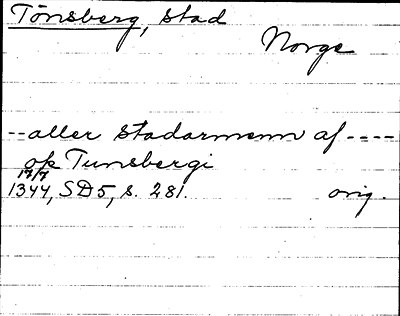 Tönsberg, stad
Norge
-- aller stadarmenn af ----
ok Tunsbergi
17/7
1344, SD5, s. 281. orig.